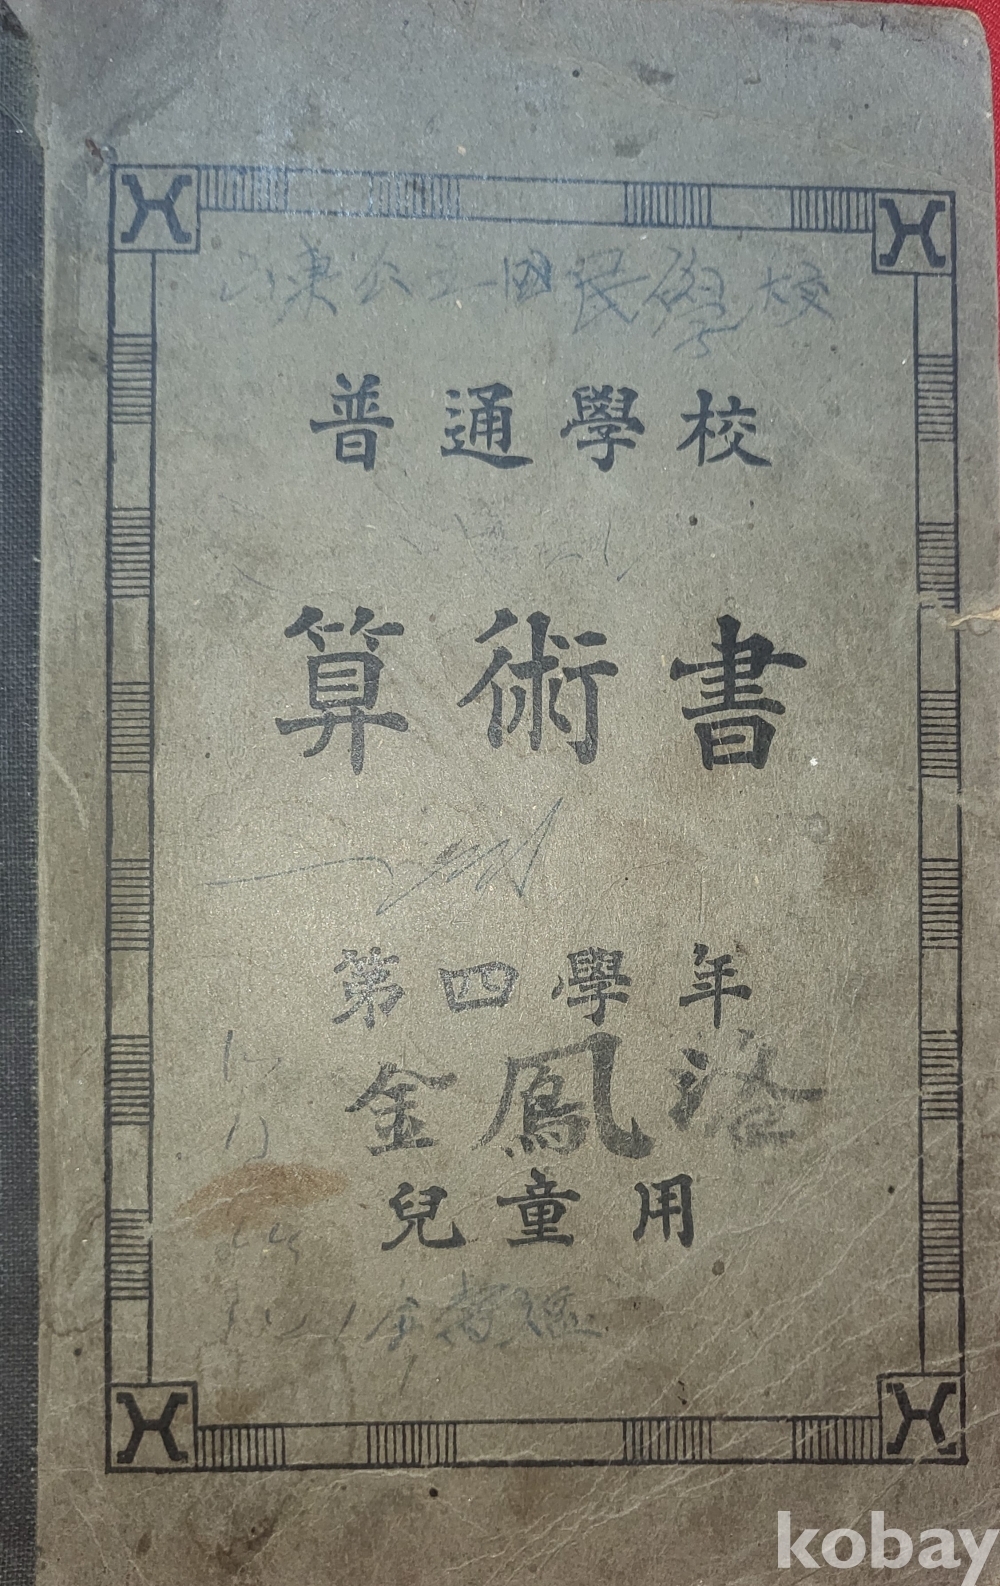 東公立國民學校
普通學校
算術書
第四學年
金鳳洛
兒童用
kobay